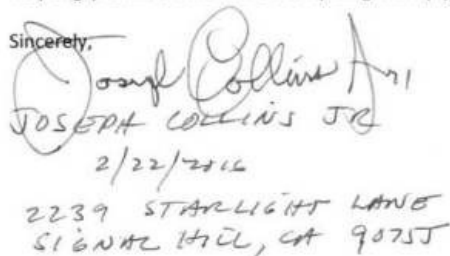 Sincerely,
Joseph Collins
JOSEPH COLLINS JR
2/22/2016
2239 STARLIGHT LANE
SIGNAL HILL, CA 90755